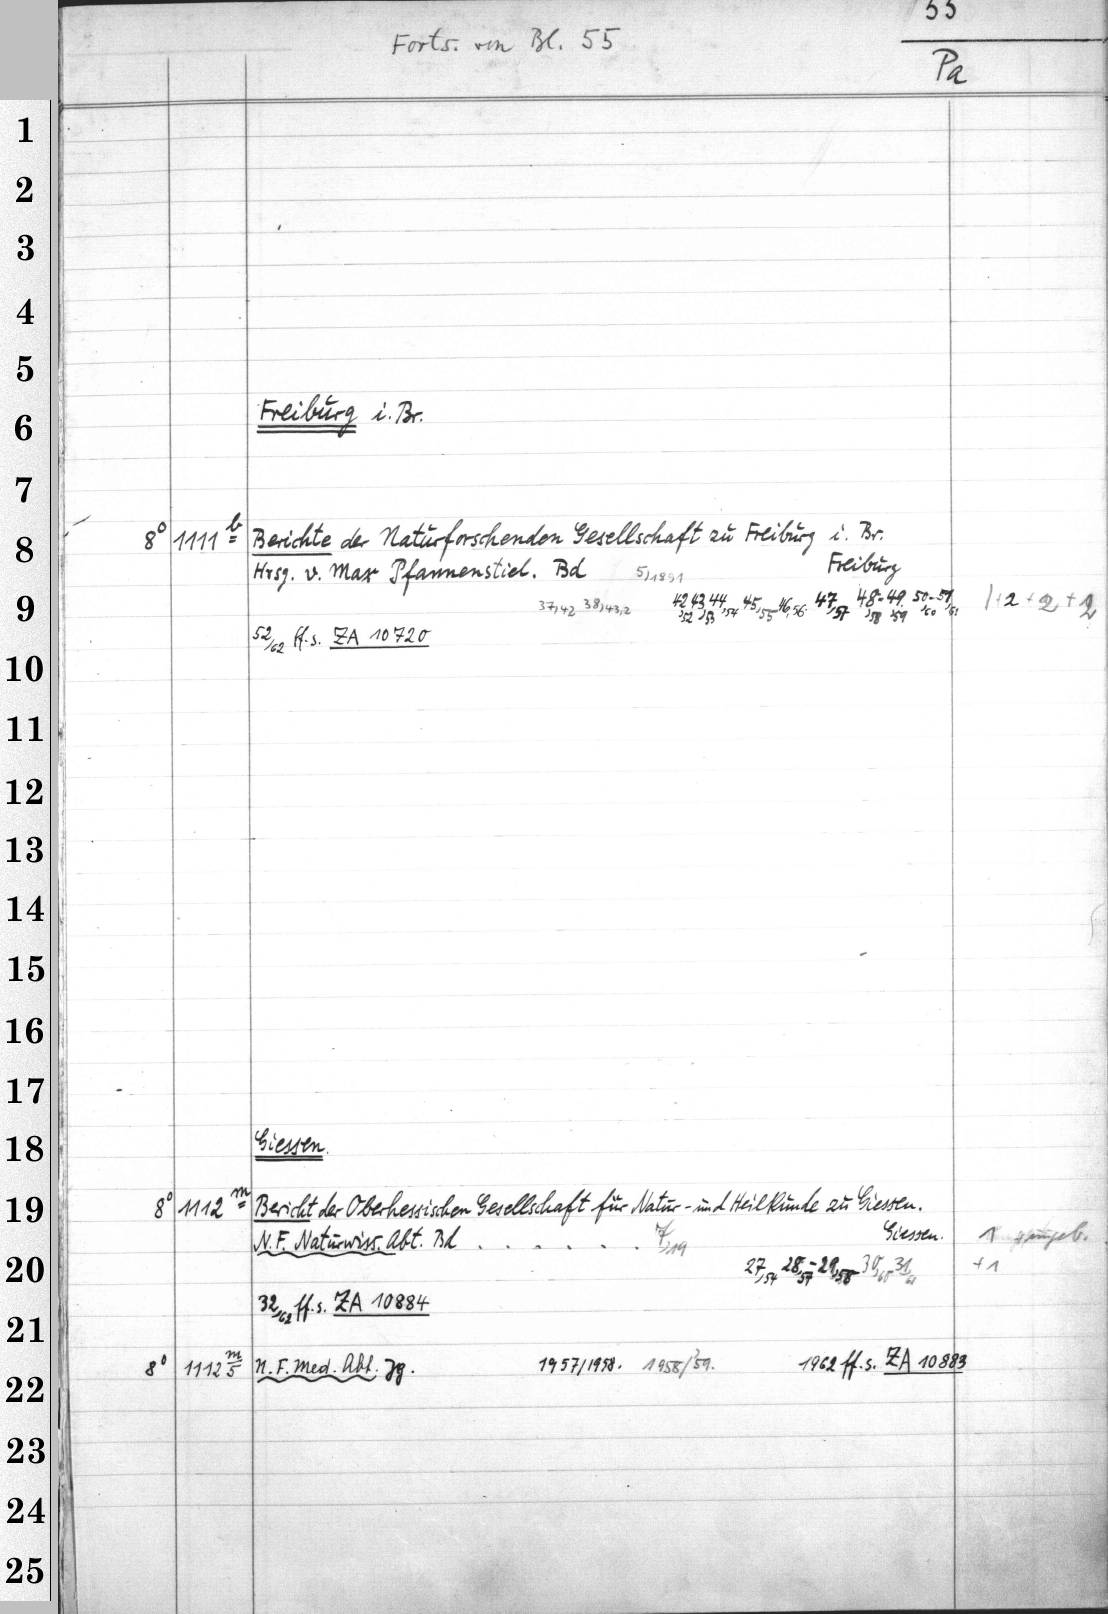 55
Forts. von Bl. 55
Pa
1
2
3
4
5
6 Freiburg i. Br.
7
8 8° 1111 b Berichte der Naturforschenden Gesellschaft zu Freiburg i. Br.
Hrsg. v. Max Pfannenstiel. Bd 5,1891 Freiburg
9 37,42 38,43,2 42,52 43,53 44,54 45,55 46,56 47,57 48,58-49,59 50,60-51,61 1+2+2+2
52,62 ff. s. ZA 10720
10
11
12
13
14
15
16
17
18 Giessen.
19 8° 1112 m Bericht der Oberhessischen Gesellschaft für Natur- und Heilkunde zu Giessen.
N. F. Naturwiss. Abt. Bd . . . . . . 7,19 Giessen. 1
20 27,54 28,57-29,58 30,60 31,61 +1
32,62 ff. s. ZA 10884
21
8° 1112 m/5 N. F. Med. Abt. Jg. 1957/1958. 1958/59. 1962 ff. s. ZA 10883
22
23
24
25